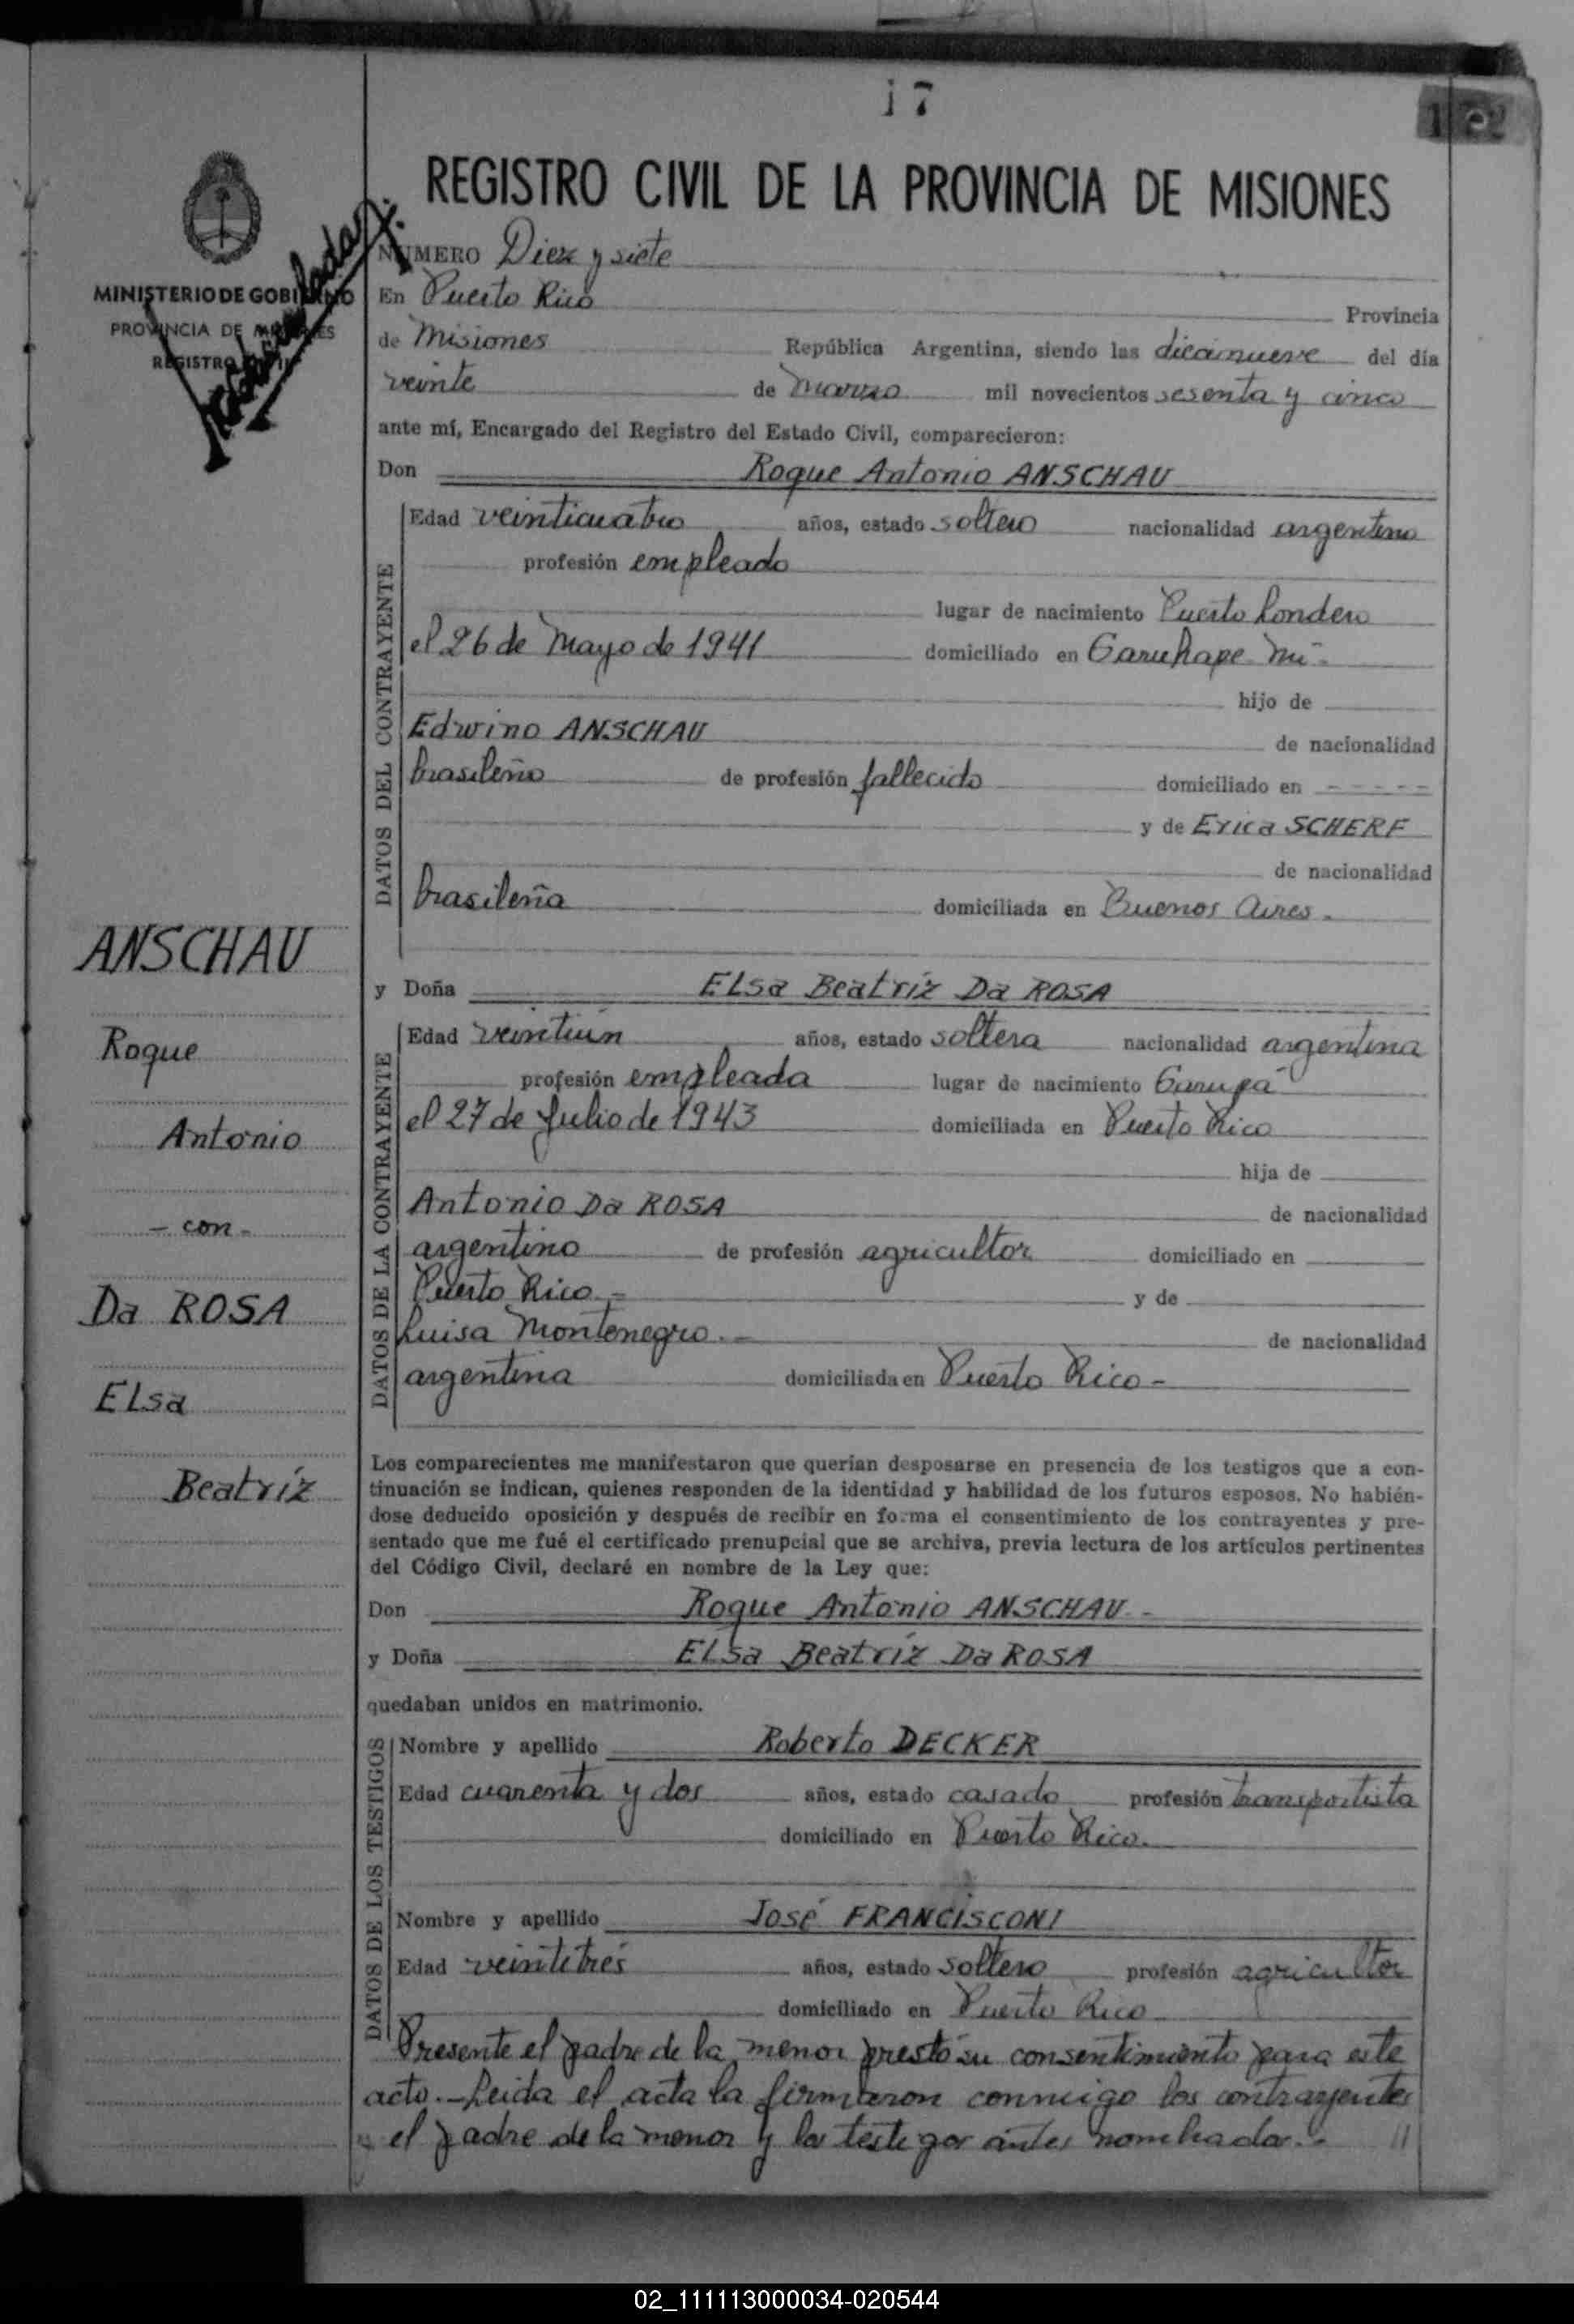 17
REGISTRO CIVIL DE LA PROVINCIA DE MISIONES
MINISTERIO DE GOBIERNO
PROVINCIA DE MISIONES
REGISTRO CIVIL
NUMERO Diez y siete
En Puerto Rico Provincia
de Misiones República Argentina, siendo las diecinueve del día
veinte de marzo mil novecientos sesenta y cinco
ante mí, Encargado del Registro del Estado Civil, comparecieron:
Don Roque Antonio ANSCHAU
DATOS DEL CONTRAYENTE
Edad veinticuatro años, estado soltero nacionalidad argentino
profesión empleado
lugar de nacimiento Puerto Londero
el 26 de Mayo de 1941 domiciliado en Garuhape Mi-
hijo de
Edwino ANSCHAU de nacionalidad
brasileño de profesión fallecido domiciliado en - - - - -
y de Erica SCHERF
de nacionalidad
brasileña domiciliada en Buenos Aires.
ANSCHAU
Roque
Antonio
- con -
Da ROSA
Elsa
Beatríz
y Doña Elsa Beatríz Da ROSA
DATOS DE LA CONTRAYENTE
Edad veintiún años, estado soltera nacionalidad argentina
profesión empleada lugar de nacimiento Garupá
el 27 de Julio de 1943 domiciliada en Puerto Rico
hija de
Antonio Da ROSA de nacionalidad
argentino de profesión agricultor domiciliado en
Puerto Rico - y de
Luisa Montenegro.- de nacionalidad
argentina domiciliada en Puerto Rico -
Los comparecientes me manifestaron que querían desposarse en presencia de los testigos que a con-
tinuación se indican, quienes responden de la identidad y habilidad de los futuros esposos. No habién-
dose deducido oposición y después de recibir en forma el consentimiento de los contrayentes y pre-
sentado que me fué el certificado prenupcial que se archiva, previa lectura de los artículos pertinentes
del Código Civil, declaré en nombre de la Ley que:
Don Roque Antonio ANSCHAU -
y Doña Elsa Beatríz Da ROSA
quedaban unidos en matrimonio.
DATOS DE LOS TESTIGOS
Nombre y apellido Roberto DECKER
Edad cuarenta y dos años, estado casado profesión transportista
domiciliado en Puerto Rico.
Nombre y apellido José FRANCISCONI
Edad veintitrés años, estado soltero profesión agricultor
domiciliado en Puerto Rico
Presente el padre de la menor prestó su consentimiento para este
acto.- Leida el acta la firmaron conmigo los contrayentes
el padre de la menor y los testigos antes nombrados.- //
02_111113000034-020544